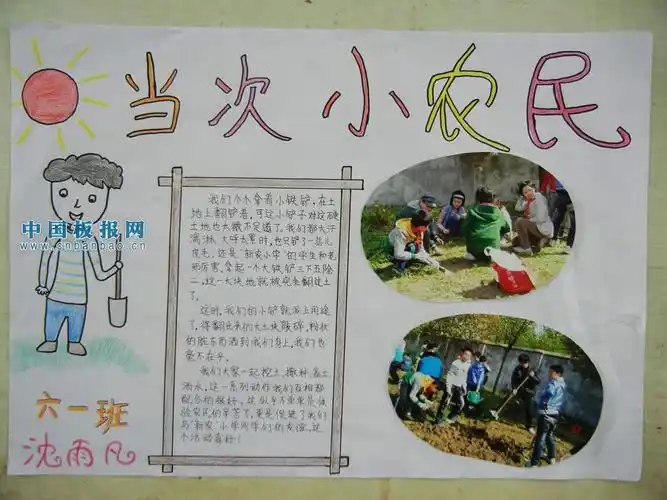 当次小农民
中国板报网
www.cnbanbao.cn
我们个个拿着小铁铲，在土
地上翻铲着，可这小铲子对这硬
土地也太微不足道了。我们都大汗
满淋、大呼大累时，也只铲了一些儿
皮毛。还是“新农小学”的学生和老
师厉害，拿起一个大铁铲三下五除
二，这一大块地就被完全翻过土
了。
这时，我们的小铲就派上用途
了，得翻出来的大土块敲碎，粉状
的脏东西洒到我们身上，我们也
毫不在乎。
我们大家一起挖土、撒种、盖土
浇水，这一系列动作我们互相都
配合的很好，这似乎不单单是体
验农民的辛苦了，更是促进了我们
与“新农”小学同学们的友谊，这
个活动真好！
六一班
沈雨凡